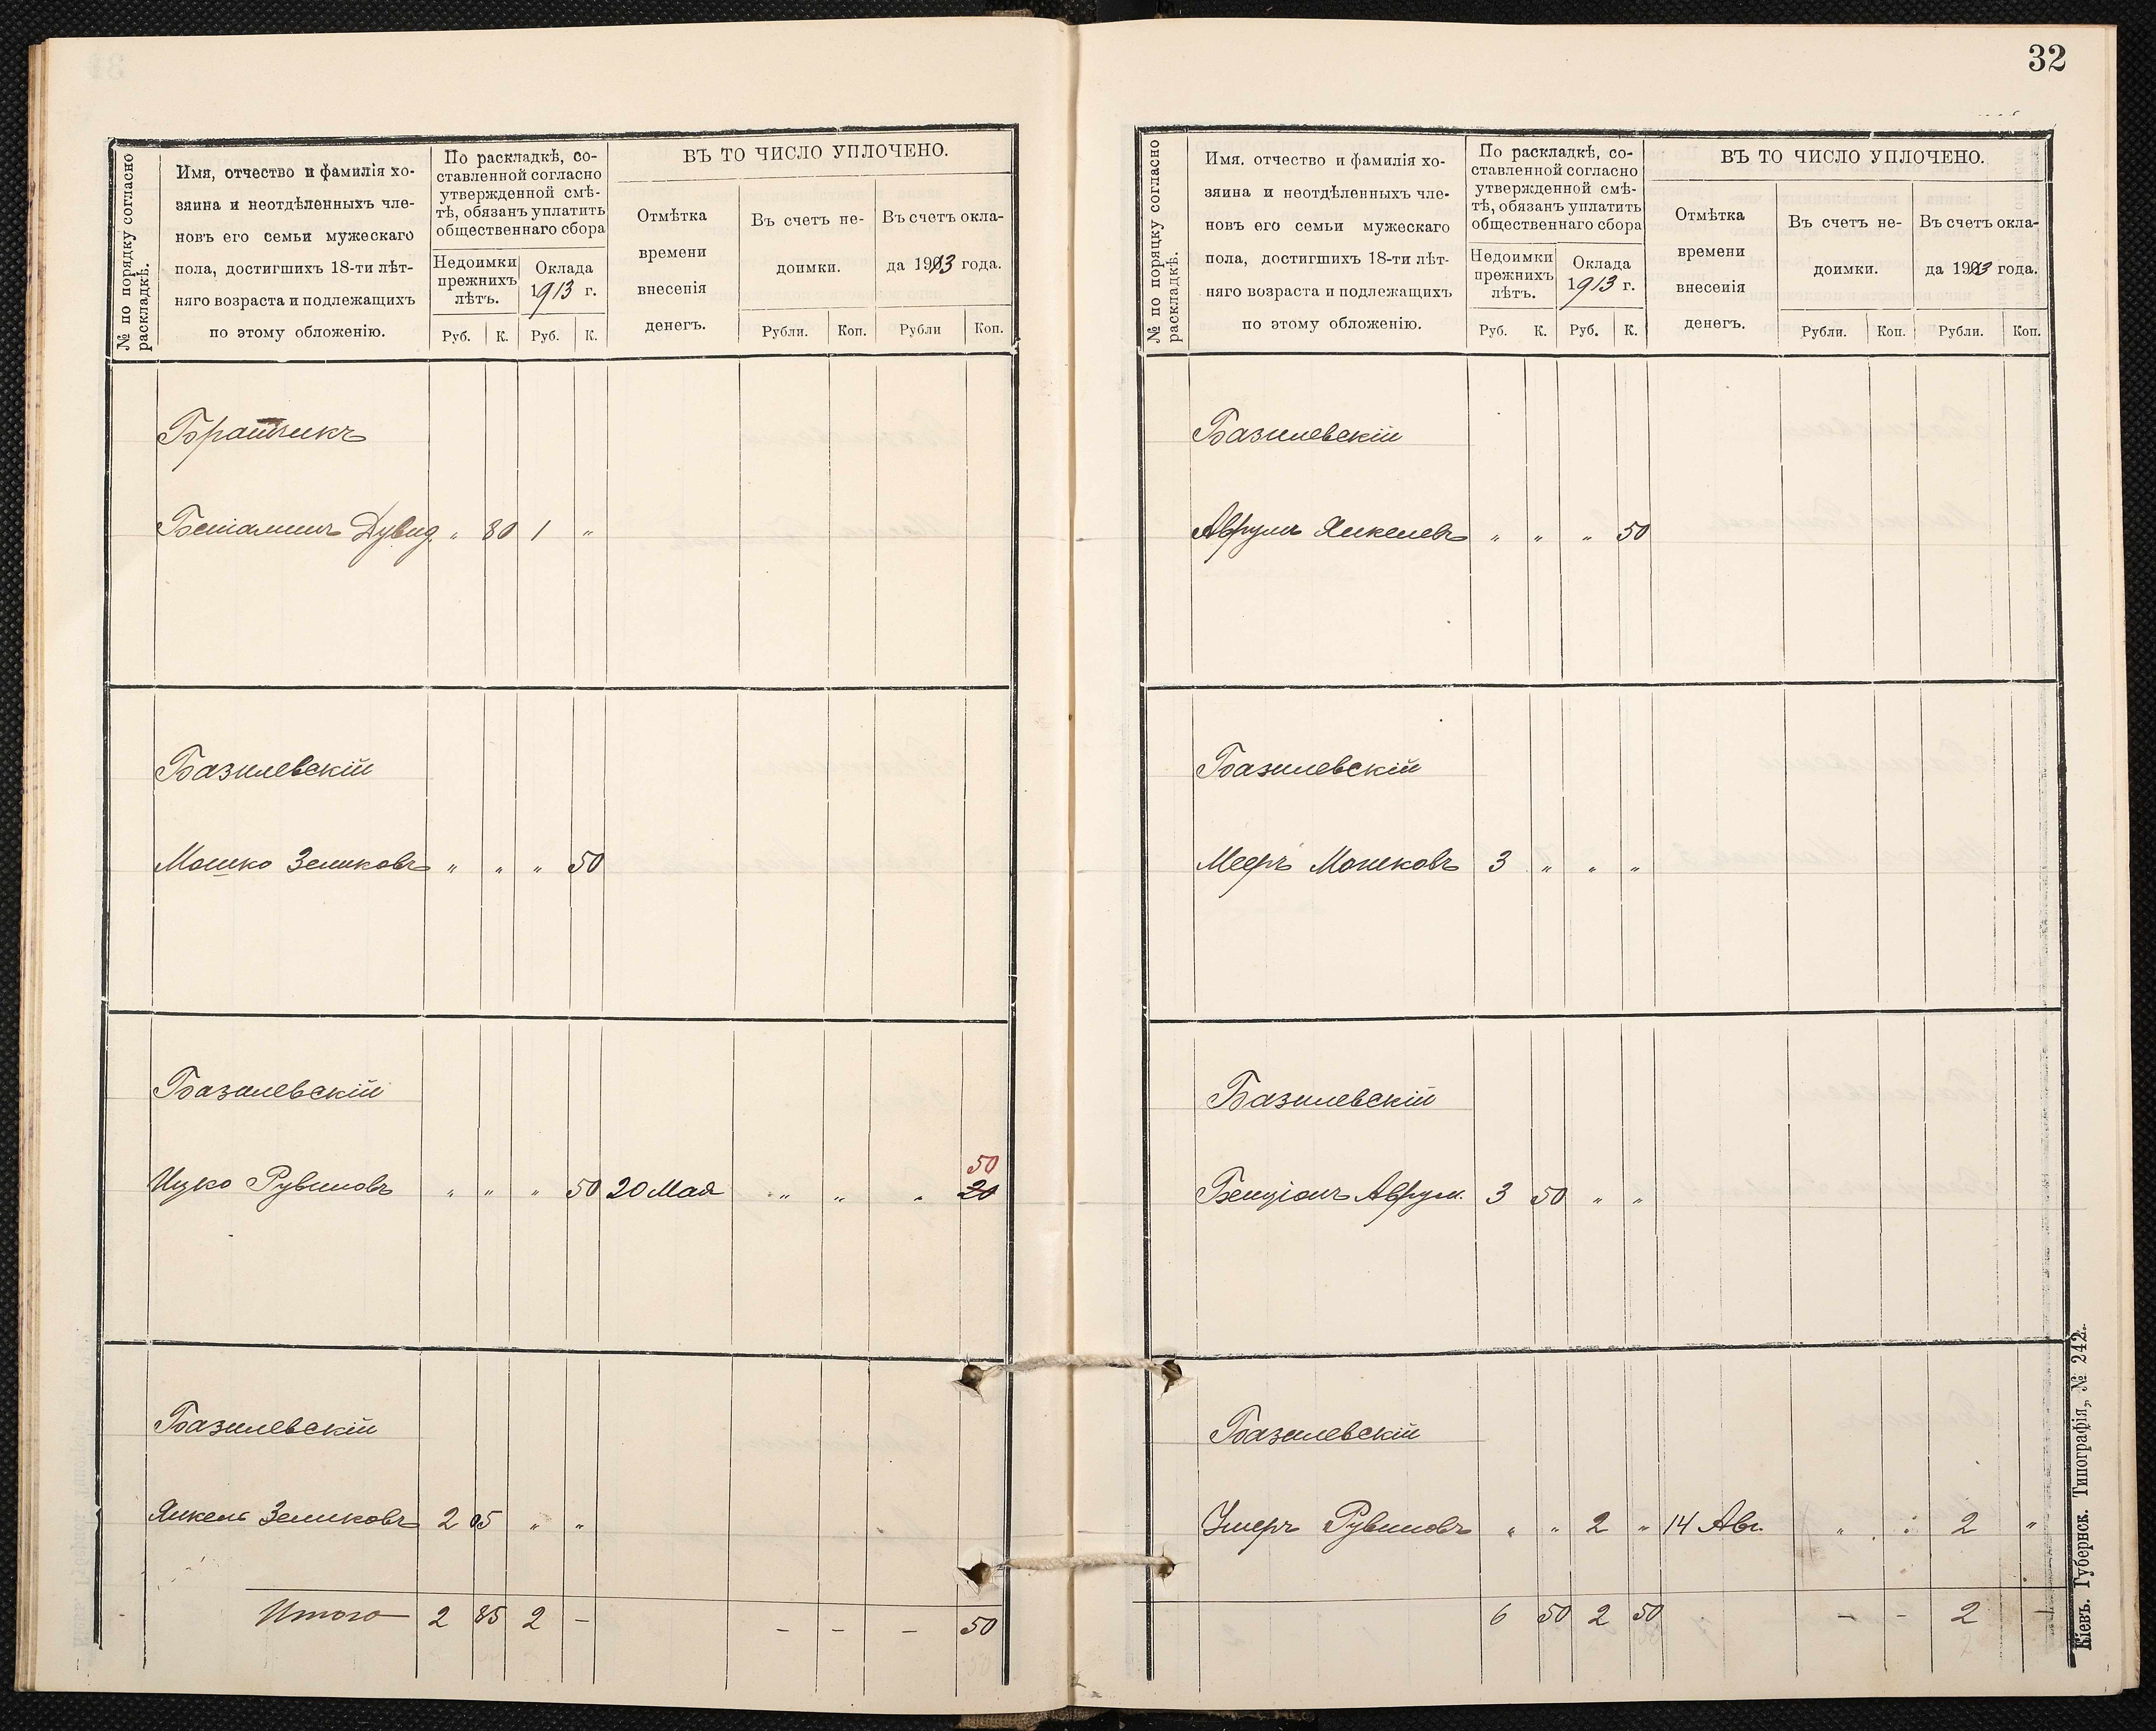 № по порядку согласно
раскладкѣ.
Имя, отчество и фамилія хо-
зяина и неотдѣленныхъ чле-
новъ его семьи мужескаго
пола, достигшихъ 18-ти лѣт-
няго возраста и подлежащихъ
по этому обложенію.
По раскладкѣ, со-
ставленной согласно
утвержденной смѣ-
тѣ, обязанъ уплатить
общественнаго сбора
Недоимки
прежнихъ
лѣтъ.
Оклада
1913 г.
Руб. К. Руб. К.
ВЪ ТО ЧИСЛО УПЛОЧЕНО.
Отмѣтка
времени
внесенія
денегъ.
Въ счетъ не-
доимки.
Въ счетъ окла-
да 1913 года.
Рубли. Коп. Рубли Коп.
Братчикъ
Беніаминъ Дувид. „ 80 1 „
Базилевскій
Мошко Зеликовъ „ „ „ 50
Базилевскій
50
Ицко Рувиновъ „ „ „ 50 20 Мая „ „ „ 20
Базилевскій
Янкель Зеликовъ 2 05 „ „
Итого 2 85 2 - - - - 50
32
№ по поряцку согласно
раскладкѣ.
Имя. отчество и фамилія хо-
зяина и неотдѣленныхъ чле-
новъ его семьи мужескаго
пола, достигшихъ 18-ти лѣт-
няго возраста и подлежащихъ
по этому обложенію.
По раскладкѣ, со-
ставленной согласно
утвержденной смѣ-
тѣ, обязанъ уплатить
общественнаго сбора
Недоимки
прежнихъ
лѣтъ.
Оклада
1913 г.
Руб. К. Руб. К.
ВЪ ТО ЧИСЛО УПЛОЧЕНО.
Отмѣтка
времени
внесенія
денегъ.
Въ счетъ не-
доимки.
Въ счетъ окла-
да 1913 года.
Рубли. Коп. Рубли. Коп.
Базилевскій
Аврумъ Янкелевъ „ „ „ 50
Базилевскій
Мееръ Мошковъ 3 „ „ „
Базилевскій
Бенціонъ Аврум. 3 50 „ „
Базилевскій
Ушеръ Рувиновъ „ „ 2 „ 14 Авг. „ „ 2 „
6 50 2 50 - - 2 -
Кіевъ. Губернск. Типографія„ № 242.